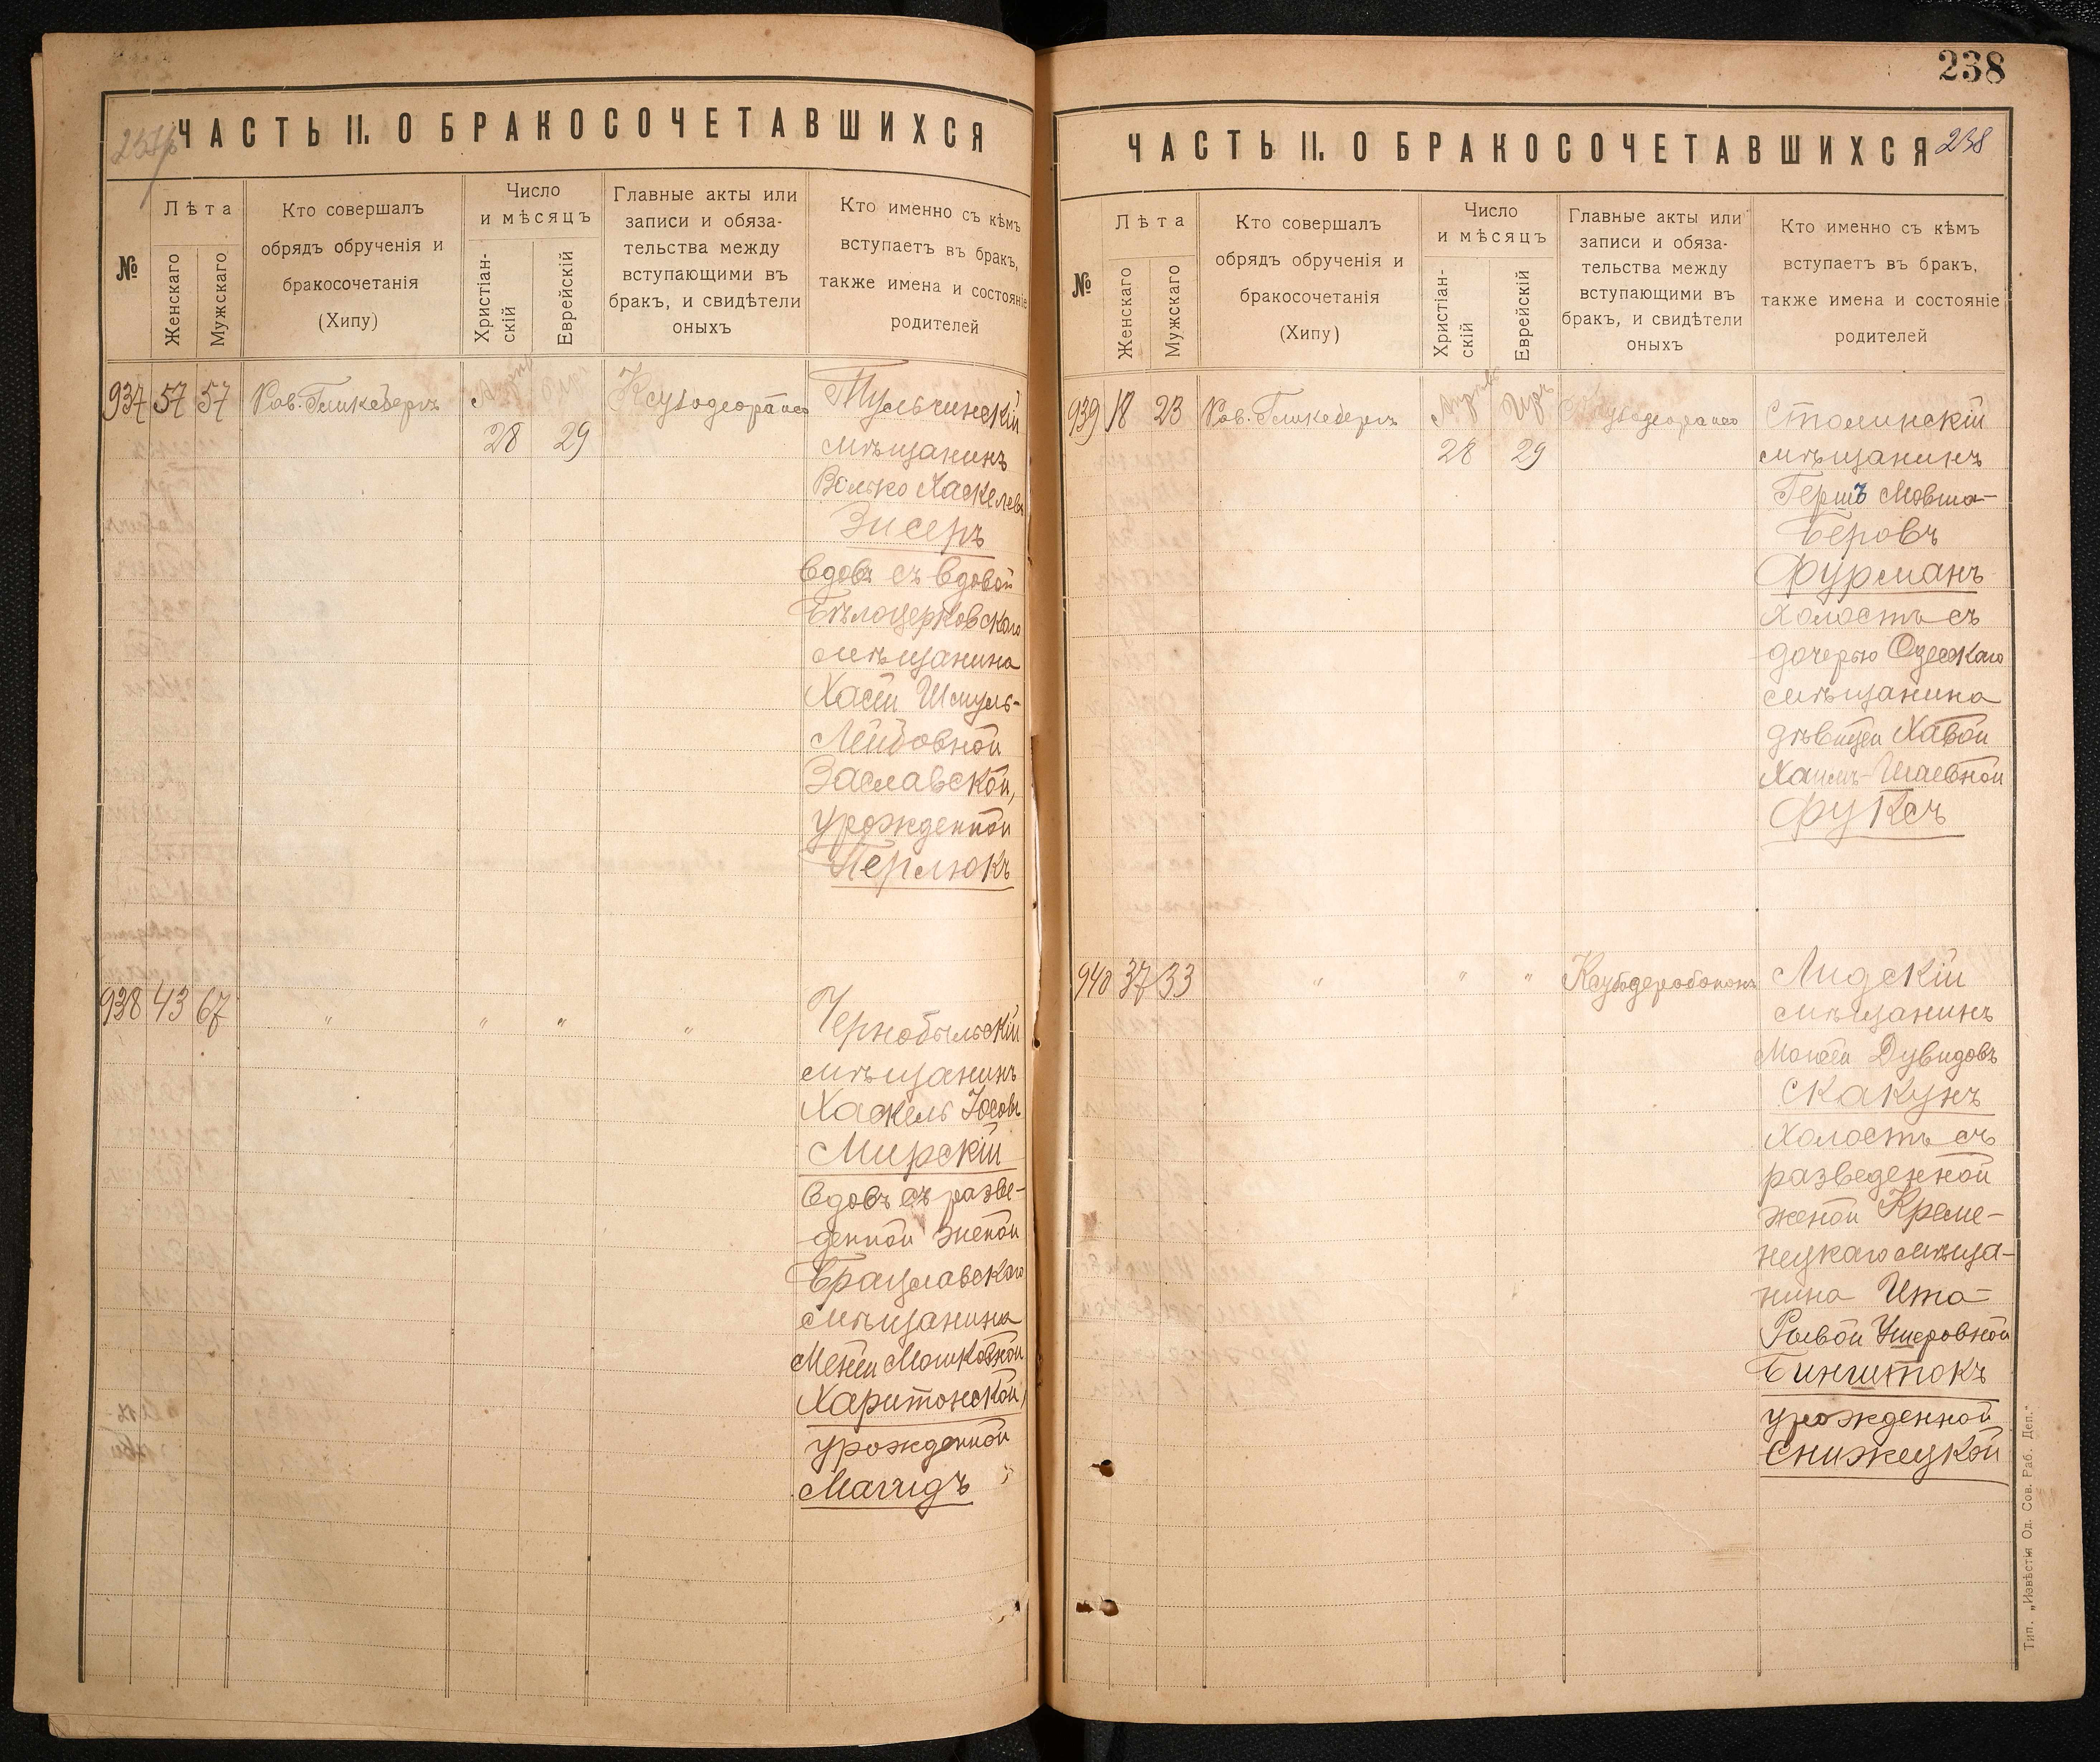 238
ЧАСТЬ II. О БРАКОСОЧЕТАВШИХСЯ
№
Лѣта
Женскаго
Мужскаго
Кто совершалъ
обрядъ обрученія и
бракосочетанія
(Хипу)
Число
и мѣсяцъ
Христіан-
скій
Еврейскій
Главные акты или
записи и обяза-
тельства между
вступающими въ
бракъ, и свидѣтели
оныхъ
Кто именно съ кѣмъ
вступаетъ въ бракъ,
также имена и состояніе
родителей
937 57 57
28 29
мѣщанинъ
Волько Хаскелевъ
Зисеръ
вдовъ съ вдовой
Бѣлоцерковскаго
мѣщанина
Хасей Шмуль-
Лейбовной
Заславской,
урожденной
Перлюкъ
938 43 67 " " " "
Чернобыльскій
мѣщанинъ
Хаскель Іосовъ
Мирскій
вдовъ съ разве-
денной женой
Брацлавскаго
мѣщанина
Меней Мошковной
Харитонской,
урожденной
Магидъ
ЧАСТЬ II. О БРАКОСОЧЕТАВШИХСЯ 238
№
Лѣта
Женскаго
Мужскаго
Кто совершалъ
обрядъ обрученія и
бракосочетанія
(Хипу)
Число
и мѣсяцъ
Христіан-
скій
Еврейскій
Главные акты или
записи и обяза-
тельства между
вступающими въ
бракъ, и свидѣтели
оныхъ
Кто именно съ кѣмъ
вступаетъ въ бракъ,
также имена и состояніе
родителей
939 18 23
28 29
Столинскій
мѣщанинъ
Гершъ Мовша-
Беровъ
Фурманъ
холостъ съ
дочерью Одесскаго
мѣщанина
дѣвицей Хавой
Хаимъ-Шаевной
Фуксъ
940 37 33 " " "
Лидскій
мѣщанинъ
Моисей Дувидовъ
Скакунъ
холостъ съ
разведенной
женой Креме-
нецкаго мѣща-
нина Ита-
Рывой Ушеровной
Бинштокъ
урожденной
Снижецкой
Тип. „Извѣстія Од. Сов. Раб. Деп."